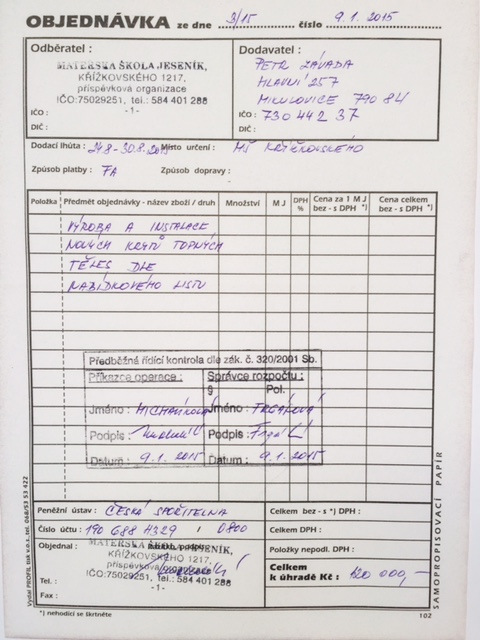 OBJEDNÁVKA ze dne 3/15 číslo 9.1.2015
Odběratel :
MATEŘSKÁ ŠKOLA JESENÍK,
KŘÍŽKOVSKÉHO 1217,
příspěvková organizace
IČO:75029251, tel.: 584 401 288
-1-
IČO :
DIČ :
Dodavatel :
PETR ZÁVADA
HLAVNÍ 257
MIKULOVICE 790 84
IČO : 730 442 37
DIČ :
Dodací lhůta : 24.8-30.8.2015 Místo určení : MŠ KŘÍŽKOVSKÉHO
Způsob platby : FA Způsob dopravy :
Položka Předmět objednávky - název zboží / druh Množství M J DPH % Cena za 1 M J bez - s DPH *) Cena celkem bez - s DPH *)
VÝROBA A INSTALACE
NOVÝCH KRYTŮ TOPNÝCH
TĚLES DLE
NABÍDKOVÉHO LISTU
Předběžná řídící kontrola dle zák. č. 320/2001 Sb.
Příkazce operace : Správce rozpočtu :
§ Pol.
Jméno : Jméno :
Podpis : Podpis :
Datum : 9.1.2015 Datum : 9.1.2015
Peněžní ústav : ČESKÁ SPOŘITELNA
Číslo účtu : 190 688 4329 / 0800
Objednal
MATEŘSKÁ ŠKOLA JESENÍK,
KŘÍŽKOVSKÉHO 1217,
příspěvková organizace
IČO:75029251, tel.: 584 401 288
-1-
Tel. :
Fax :
Celkem bez - s *) DPH :
Celkem DPH :
Položky nepodl. DPH :
Celkem
k úhradě Kč : 120 000,-
*) nehodící se škrtněte
102
Vydal PROFIL tisk v.c.t. tel. 068/53 53 422
SAMOPROPISOVACÍ PAPÍR